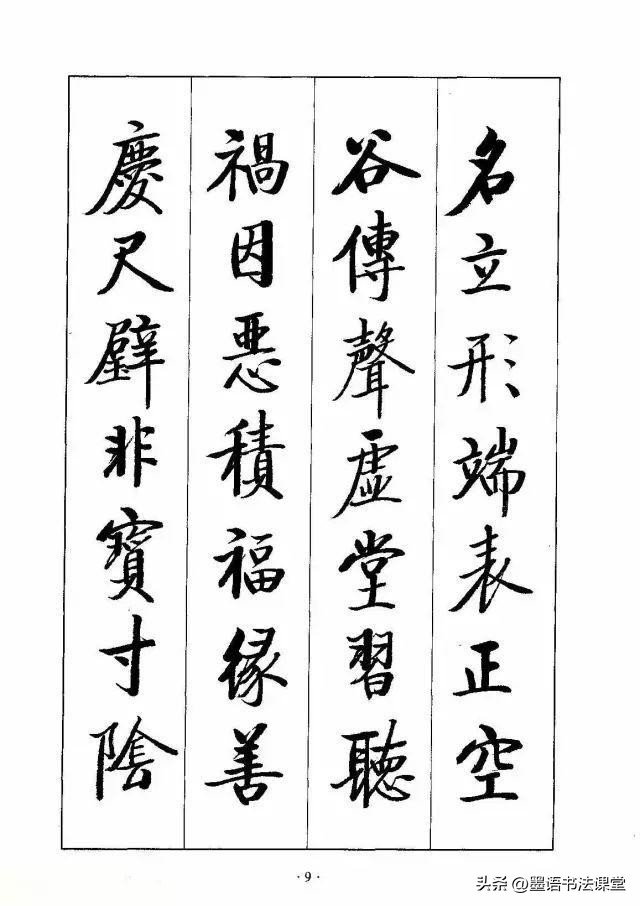 名立形端表正空
谷傳聲虛堂習聽
禍因惡積福緣善
慶尺璧非寶寸陰
·9·
头条@墨语书法课堂